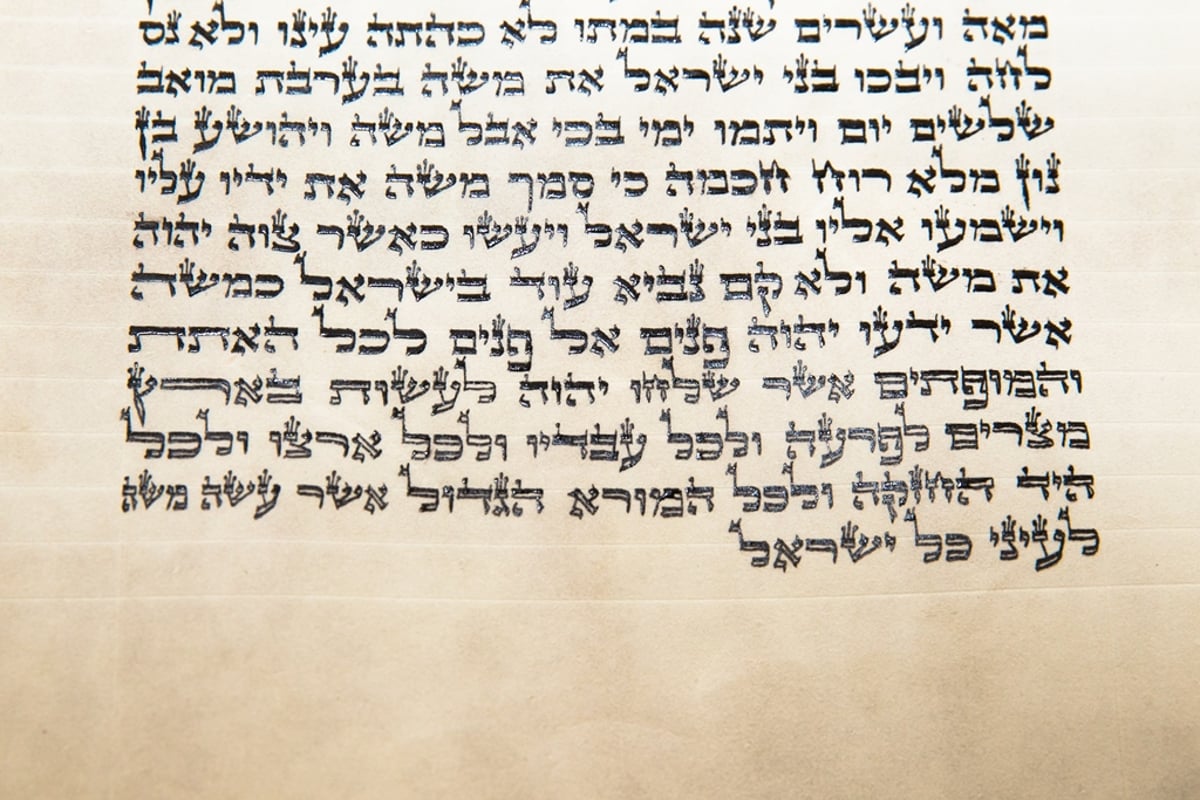 מאה ועשרים שנה במתו לא כהתה עינו ולא נס
לחה ויבכו בני ישראל את משה בערבת מואב
שלשים יום ויתמו ימי בכי אבל משה ויהושע בן
נון מלא רוח חכמה כי סמך משה את ידיו עליו
וישמעו אליו בני ישראל ויעשו כאשר צוה יהוה
את משה ולא קם נביא עוד בישראל כמשה
אשר ידעו יהוה פנים אל פנים לכל האתת
והמופתים אשר שלחו יהוה לעשות בארץ
מצרים לפרעה ולכל עבדיו ולכל ארצו ולכל
היד החזקה ולכל המורא הגדול אשר עשה משה
לעיני כל ישראל